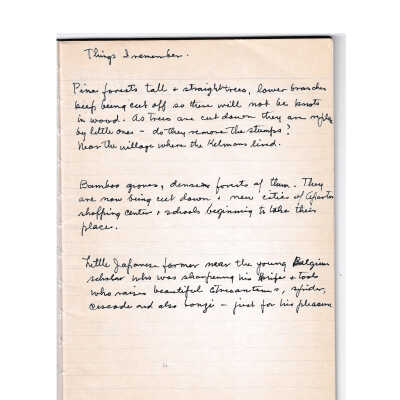 Things I remember.
Pine forests tall + straight trees, lower branches
keep being cut off so there will not be knots
in wood. As trees are cut down they are
by little ones - do they remove the stumps?
Near the village where the Kelmans lived.
Bamboo groves, dense forests of them. They
are now being cut down + new cities of
shopping center + schools beginning to take their
place.
Little Japanese farmer near the young Belgian
scholar who was sharpening his knife + tools
who raises beautiful , spider,
cascade and also - just for his pleasure